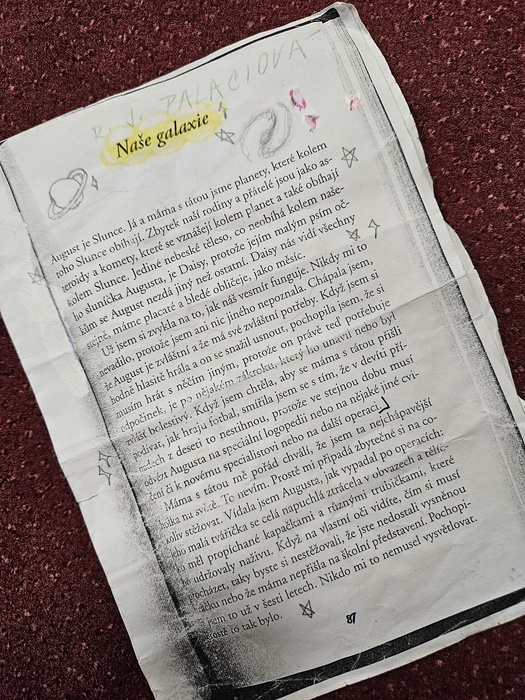 R. J. PALACIOVÁ
Naše galaxie
August je Slunce. Já a máma s tátou jsme planety, které kolem
toho Slunce obíhají. Zbytek naší rodiny a přátelé jsou jako as-
teroidy a komety, které se vznášejí kolem planet a také obíhají
kolem Slunce. Jediné nebeské těleso, co neobíhá kolem naše-
ho sluníčka Augusta, je Daisy, protože jejím malým psím oč-
kům se August nezdá jiný než ostatní. Daisy nás vidí všechny
stejně, máme placaté a bledé obličeje, jako měsíc.
Už jsem si zvykla na to, jak náš vesmír funguje. Nikdy mi to
nevadilo, protože jsem ani nic jiného nepoznala. Chápala jsem,
že August je zvláštní a že má své zvláštní potřeby. Když jsem si
hodně hlasitě hrála a on se snažil usnout, pochopila jsem, že si
musím hrát s něčím jiným, protože on právě teď potřebuje
odpočinek, je po nějakém zákroku, který ho unavil nebo byl
zvlášť bolestivý. Když jsem chtěla, aby se máma s tátou přišli
podívat, jak hraju fotbal, smířila jsem se s tím, že v devíti pří-
padech z deseti to nestáhnou, protože ve stejnou dobu musí
odvézt Augusta na speciální logopedii nebo na nějaké jiné cvi-
čení či k novému specialistovi nebo na další operaci.
Máma s tátou mě pořád chválí, že jsem ta nejchápavější
holka na světě. To nevím. Prostě mi připadá zbytečné si na co-
koliv stěžovat. Vídala jsem Augusta, jak vypadal po operacích:
jeho malá tvářička se celá napuchlá ztrácela v obvazech a tělíč-
ko měl propíchané kapačkami a různými trubičkami, které
ho udržovaly naživu. Když na vlastní oči vidíte, čím si musí
procházet, taky byste si nestěžovali, že jste nedostali vysněnou
hračku nebo že máma nepřišla na školní představení. Pochopi-
la jsem to už v šesti letech. Nikdo mi to nemusel vysvětlovat.
Prostě to tak bylo.
87